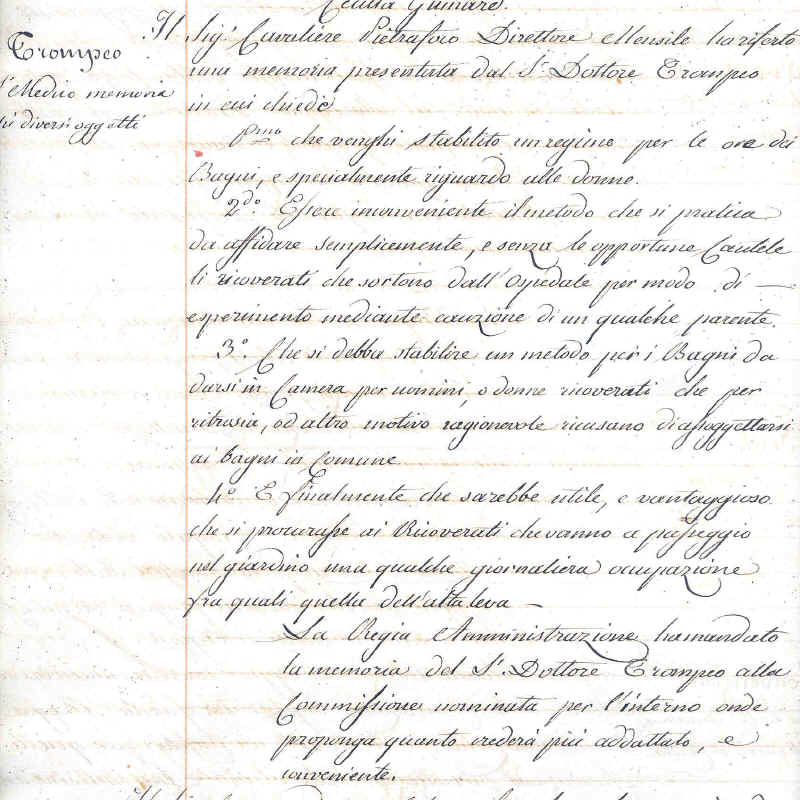 Trompeo
Medico memoria
diversi oggetti
Il Sig.r Cavaliere Pietrafoco Direttore Mensile ha riferto
una memoria presentata dal S.r Dottore Trompeo
in cui chiede
P.mo che venghi stabilito un regime per le ore dei
Bagni, e specialmente riguardo alle donne.
2.do Essere inconveniente il metodo che si pratica
da affidare semplicemente, e senza le opportune Cautele
li ricoverati che sortono dall'Ospedale per modo di —
esperimento mediante cauzione di un qualche parente.
3.o Che si debba stabilire un metodo per i Bagni da
darsi in Camera per uomini, o donne ricoverati che per
ritrosia, od altro motivo ragionevole ricusano di assoggettarsi
ai bagni in Comune
4.o E finalmente che sarebbe utile, e vantaggioso
che si procurasse ai Ricoverati che vanno a passeggio
nel giardino una qualche giornaliera occupazione
fra quali quella dell'alta leva —
La Regia Amministrazione ha mandato
la memoria del S.r Dottore Trompeo alla
Commissione nominata per l'interno onde
proponga quanto crederà più addattato, e
conveniente.